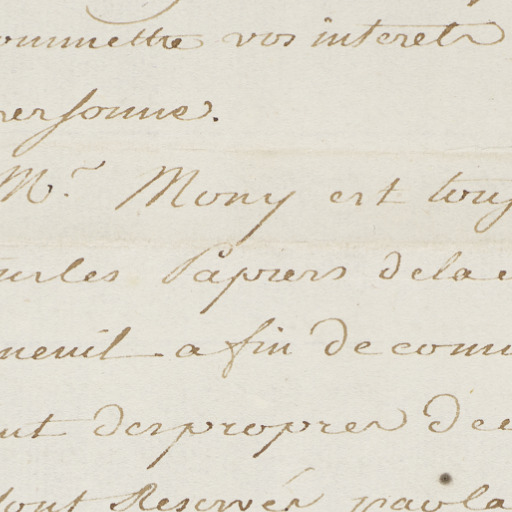 ommettre vos interets
personne.
Mr. Mony est touj
sur les Papiers de la
neuil afin de conn
nt des propres de
sont Reservés par la